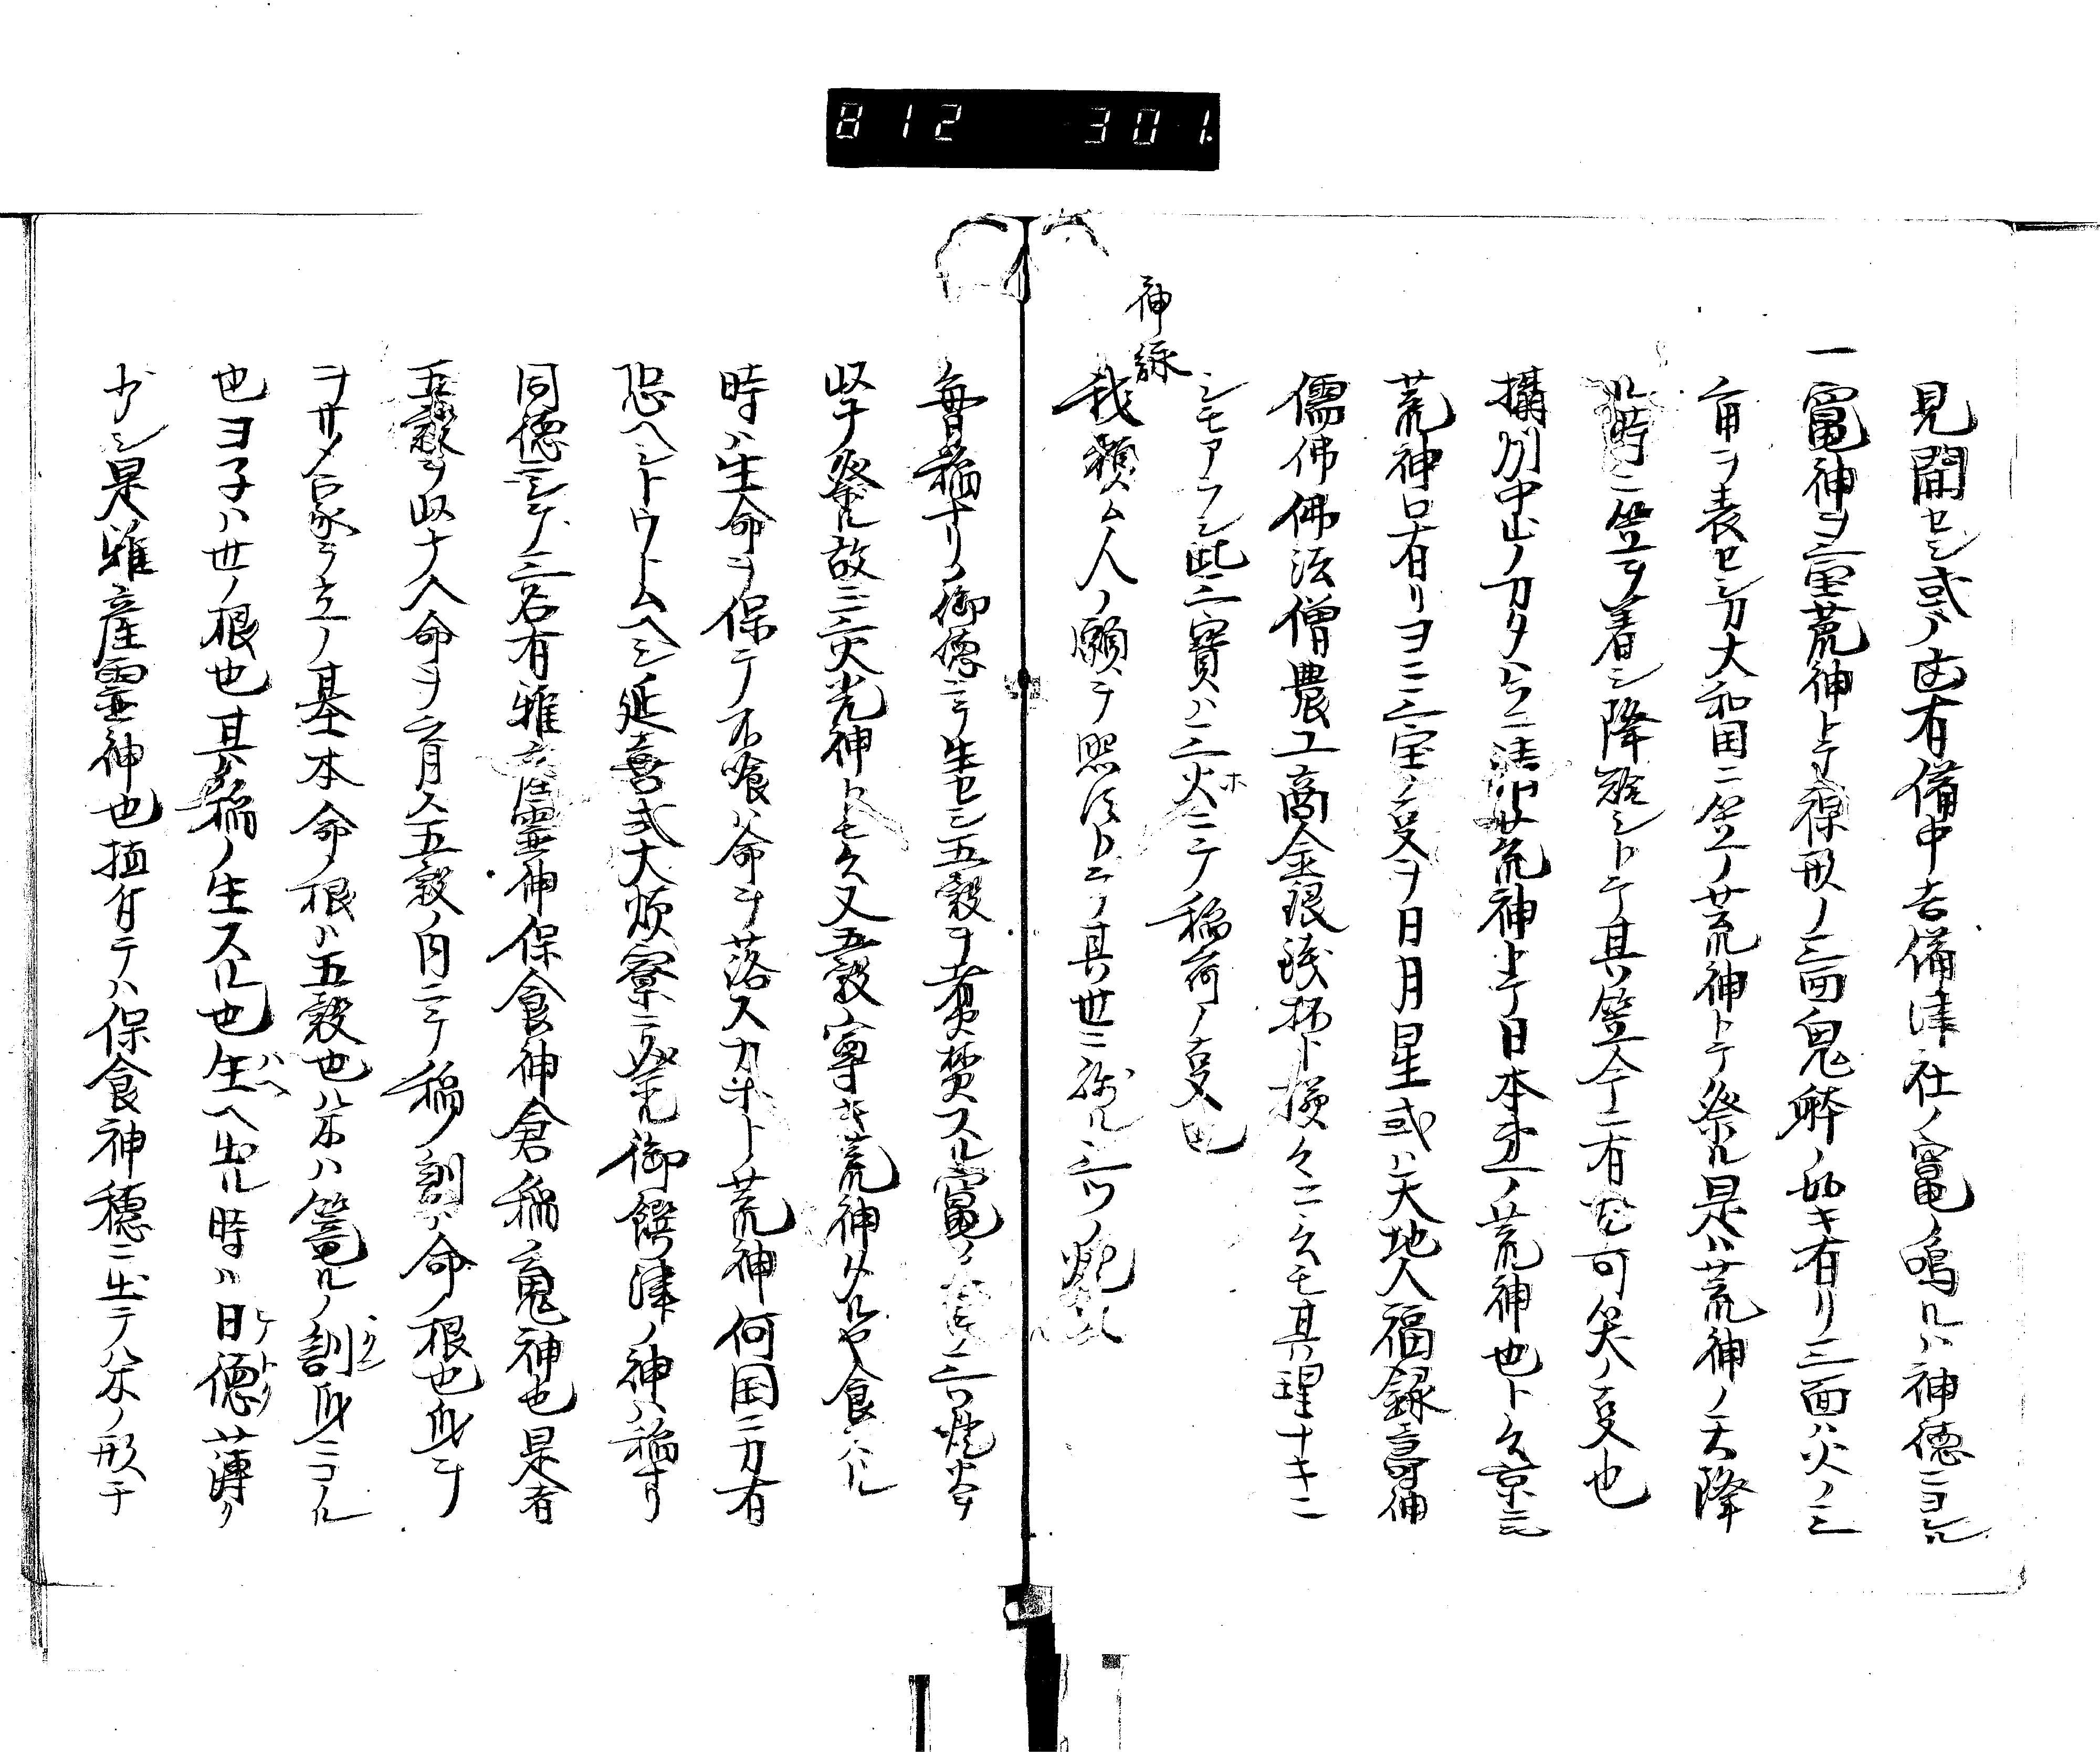 812 301.
見聞セシ或ノ内有備中吉備津社ノ竈ノ鳴ルハ神徳ニヨル
一竈神ヲ三宝荒神トテ裸形ノ三面鬼躰ノ如キ有リ三面ハ火ノ三
角ヲ表セシカ大和国ニ笠ノ荒神トテ祭ル是ハ荒神ノ天降
ル時ニ笠ヲ着シ降臨シトテ其笠今ニ有ト可笑ノ事也
摂州中山ノカタヘニ清荒神トテ日本第一ノ荒神也ト云京ニ
荒神口有リヨニ三宝ノ事ヲ日月星或ハ天地人福録寿神
儒佛佛法僧農工商金銀銭抔ト様々ニ云モ其理ナキニ
シモアラシ此三寶ハ三火ニテ稲荷ノ事也
神詠
我頼ム人ノ願ヲ照ストテ其世ニ残ル三ツノ
毎日稲ナリノ御徳ニテ生セシ五穀ヲ煮焚スル竈ノ三ツ火ヲ
竪テ祭ル故ニ三火光神トモ云又五穀寧キ荒神タルヤ食ハル
時ハ生命ヲ保テ不喰ハ命ヲ落スカ米ト荒神何国ニカ有
恐ヘシトウトムヘシ延喜式大炊寮ニ祭ル御饌津ノ神ハ稲ナリ
同徳ニシテ二名有雅産霊神保食神倉稲魂神也是者
五穀ヲ収ナ人命ヲ育月ス五穀ノ内ニテ稲ノ訓ハ命ノ根也身ヲ
ヲサメ家ヲ立ノ基本命ノ根ハ五穀也米ハ篭ルノ訓身ニコル
也ヨ子ハ世ノ根也其稲ノ生スル也生ヘ出ル時ハ日徳薄ク
少シ是雅産霊神也植付テハ保食神穂ニ出テ米ノ形チ